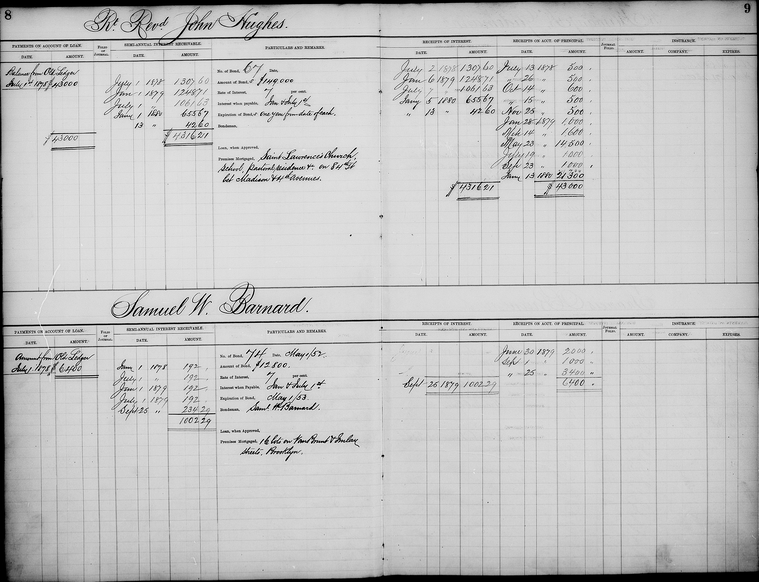 8
9
Rt. Revd. John Hughes.
PAYMENTS ON ACCOUNT OF LOAN. FOLIO OF JOURNAL. SEMI-ANNUAL INTEREST RECEIVABLE. PARTICULARS AND REMARKS.
DATE. AMOUNT. DATE. AMOUNT.
Balance from Old Ledger
July 1st 1878 $ 43000
$ 43000
July 1 1878 1307 60
Jany 1 1879 1248 71
July 1 " 1061 63
Jany 1 1880 655 67
13 " 42 60
$ 4316 21
No. of Bond, 67
Amount of Bond, $149,000
Rate of Interest, 7 per cent.
Interest when payable, Jan & July 1st
Expiration of Bond, One year from date of each.
Bondsmen,
Loan, when Approved,
Premises Mortgaged, Saint Lawrence's Church,
School, pastoral residence &c on 84th St
bet Madison & 4th Avenues.
RECEIPTS OF INTEREST. RECEIPTS ON ACCT. OF PRINCIPAL. JOURNAL FOLIO. INSURANCE.
DATE. AMOUNT. DATE. AMOUNT. AMOUNT. COMPANY. EXPIRES.
July 2 1878 1307 60
Jany 6 1879 1248 71
July 7 " 1061 63
Jany 5 1880 655 67
" 13 " 42 60
$ 4316 21
July 13 1878 500
" 26 " 500
Oct 14 " 600
" 15 " 500
Nov 25 " 500
Jan 28 1879 1,000
Mch 14 " 1,600
May 23 " 14,500
July 19 " 1000
Sep 23 " 1,000
Jany 13 1880 21300
$ 43000
Samuel W. Barnard.
PAYMENTS ON ACCOUNT OF LOAN. FOLIO OF JOURNAL. SEMI-ANNUAL INTEREST RECEIVABLE. PARTICULARS AND REMARKS.
DATE. AMOUNT. DATE. AMOUNT.
Amount from Old Ledger
July 1, 1878 $ 6400
Jany 1 1878 192
July 1 " 192
Jany 1 1879 192
July 1 1879 192
Sept 25 " 234 29
1002 29
No. of Bond, 714 Date, May 1/52
Amount of Bond, $12,800.
Rate of Interest, 7 per cent.
Interest when Payable, Jan & July 1st
Expiration of Bond, May 1/53.
Bondsmen, Saml. W. Barnard.
Loan, when Approved,
Premises Mortgaged, 16 lots on Van Brunt & Imlay
Streets, Brooklyn.
RECEIPTS OF INTEREST. RECEIPTS ON ACCT. OF PRINCIPAL. JOURNAL FOLIO. INSURANCE.
DATE. AMOUNT. DATE. AMOUNT. AMOUNT. COMPANY. EXPIRES.
Sept 25 1879 1002 29
June 30 1879 2000
Sep 1 " 1000
" 25 " 3400
6400